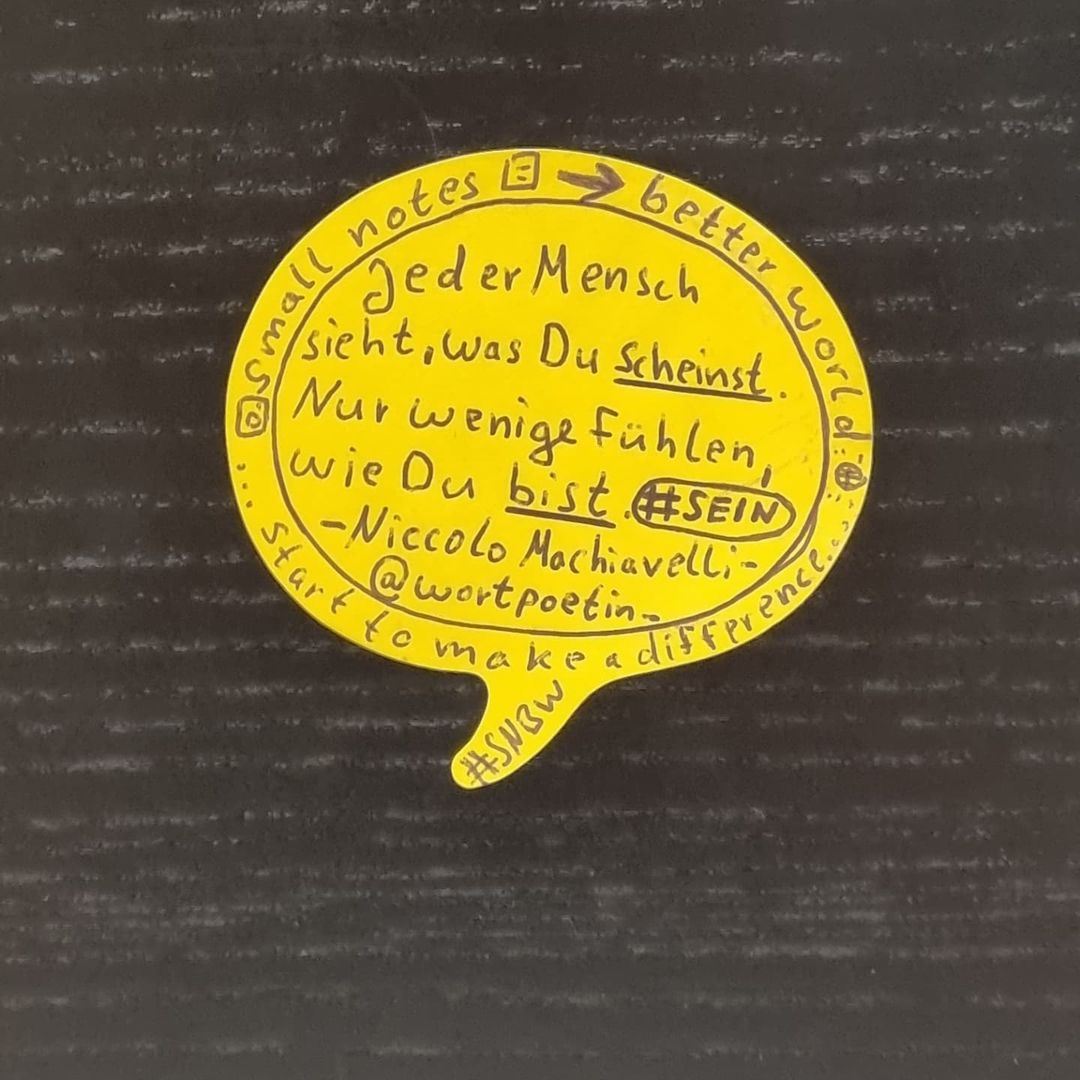 Small notes → better world
Jeder Mensch
sieht, was Du scheinst.
Nur wenige fühlen,
wie Du bist. #SEIN
-Niccolo Machiavelli-
@wortpoetin_
... Start to make a difference...
#SNBW